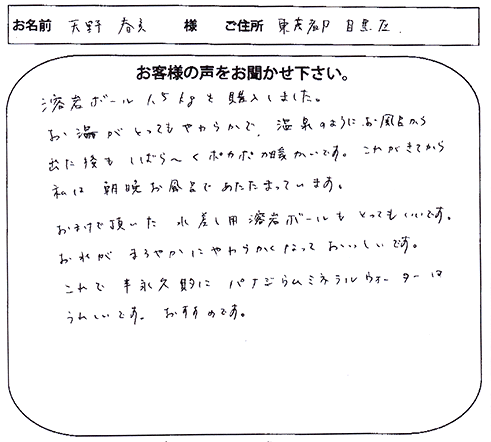 お名前 天野 春美 様 ご住所 東京都 目黒区.
お客様の声をお聞かせ下さい。
溶岩ボール1.5kgを購入しました。
お湯がとってもやわらかで、温泉のようにお風呂から
出た後も しばら〜くポカポカ暖かいです。これがきてから
私は 朝晩お風呂であたたまっています。
おまけで頂いた 水差し用溶岩ボールも とってもいいです。
お水が まろやかにやわらかくなって おいしいです。
これで 半永久的に バナジウムミネラルウォーターは
うれしいです。おすすめです。